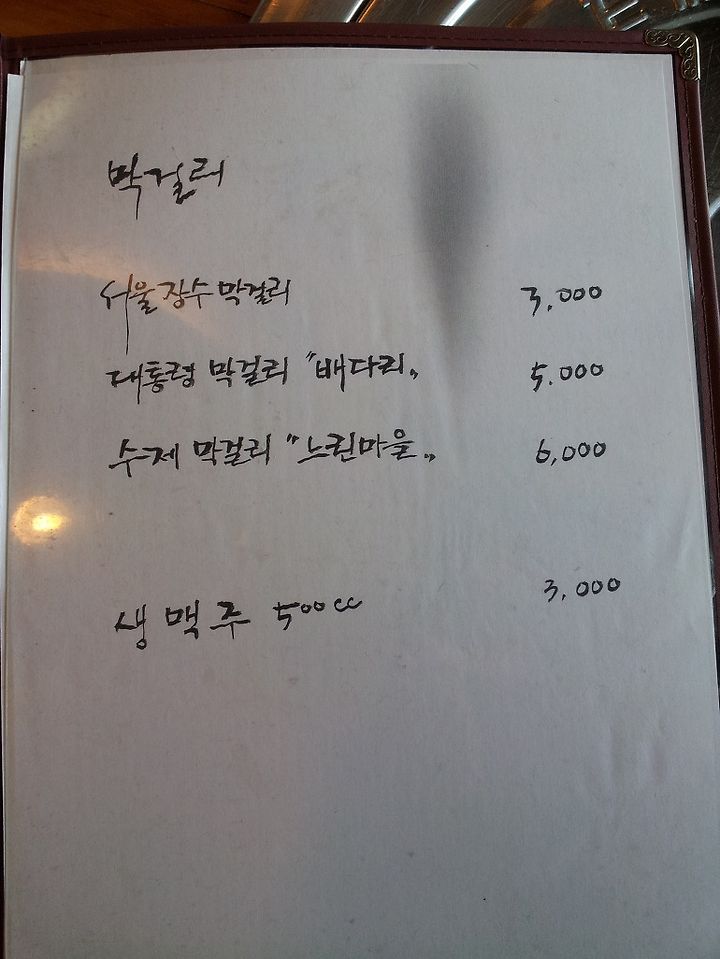 막걸리
서울장수막걸리 3,000
대통령 막걸리 "배다리" 5.000
수제 막걸리 "느린마을" 6,000
생맥주 500cc 3,000